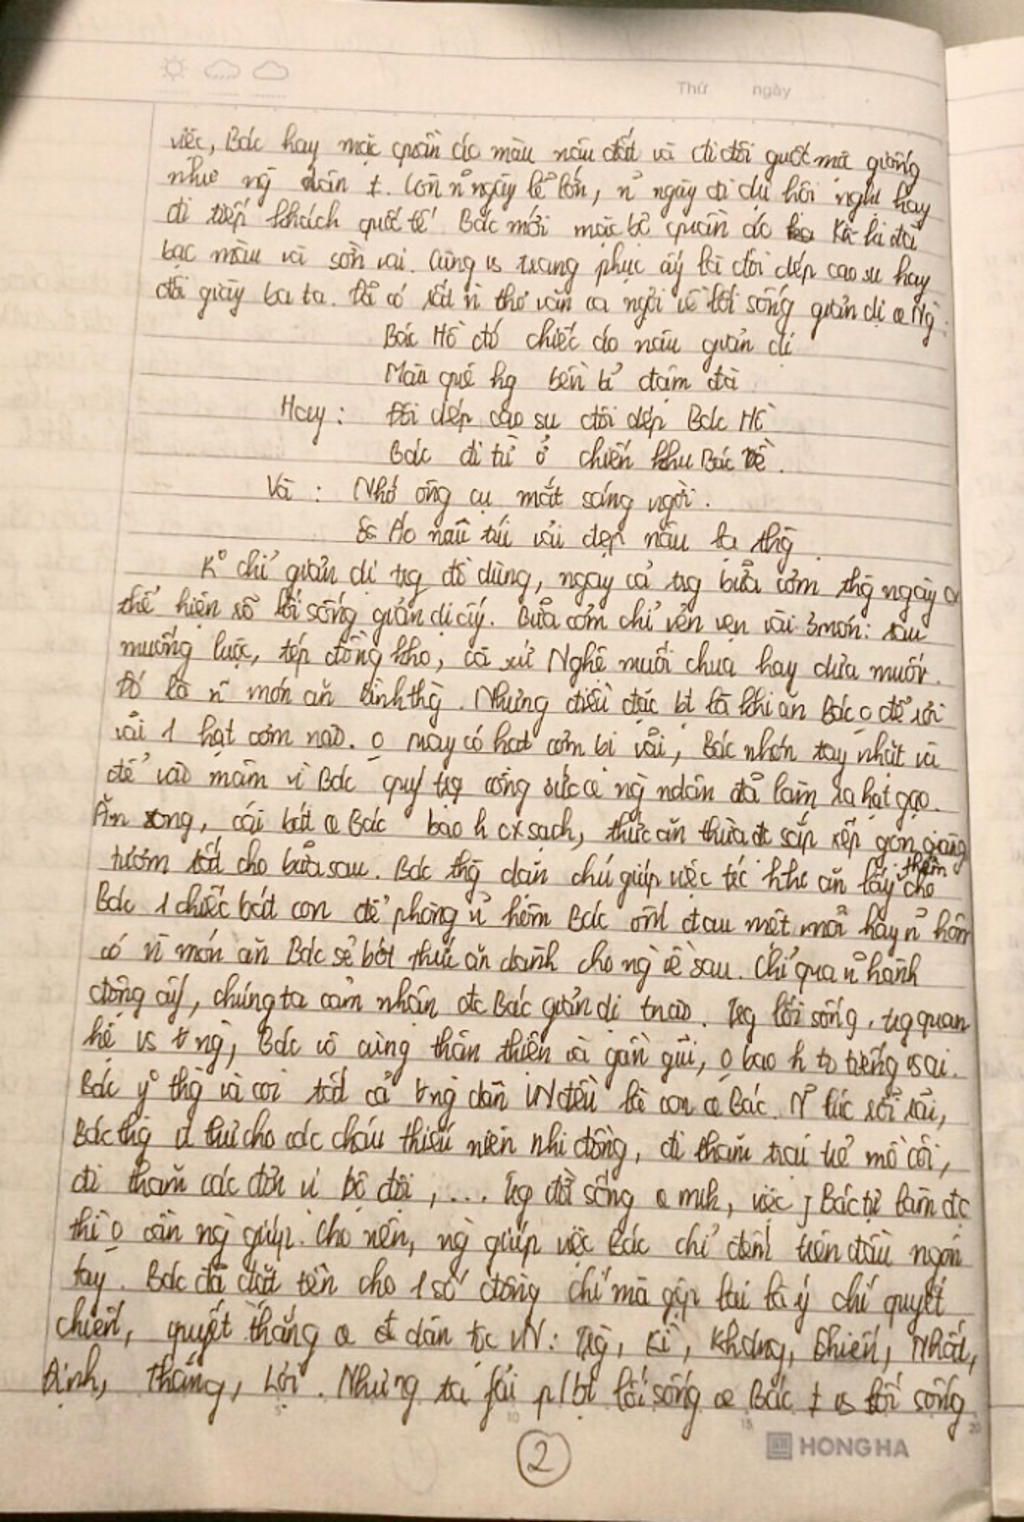 Thứ ngày
việc, Bác hay mặc quần áo màu nâu đất và đi đôi guốc mà giống
như ng dân t. Còn n ngày lễ lớn, n ngày đi dự hội nghị hay
đi tiếp khách quốc tế Bác mới mặc bộ quần áo Ka ki đã
bạc màu và sờn vai. Cùng vs trang phục ấy là đôi dép cao su hay
đôi giày ba ta. Đã có rất n thơ văn ca ngợi về lối sống giản dị Ng:
Bác Hồ đó chiếc áo nâu giản dị
Màu quê hg bền bỉ đậm đà
Hay: Đôi dép cao su đôi dép Bác Hồ
Bác đi từ ở chiến khu Bác về.
Và: Nhớ ông cụ mắt sáng ngời.
Áo nâu túi vải đẹp nâu lạ thg
K chỉ giản dị trg đồ dùng, ngay cả trg bữa cơm thg ngày
thể hiện rõ lối sống giản dị ấy. Bữa cơm chỉ vẻn vẹn vài 3 món: rau
muống luộc, tép đồng kho, cà xứ Nghệ muối chua hay dưa muối.
Đó là n món ăn bình thg. Nhưng điều đặc bt là khi ăn Bác o để rơi
vãi 1 hạt cơm nào. o may có hạt cơm bị vãi, Bác nhón tay nhặt và
để vào mâm vì Bác quý trg công sức ng ndân đã làm ra hạt gạo.
Ăn xong, cái bát Bác bao h cx sạch, thức ăn thừa đc sắp xếp gọn gàng
tươm tất cho bữa sau. Bác thg dặn chú giúp việc trc khi ăn lấy thêm cho
Bác 1 chiếc bát con để phòng n hôm Bác ốm đau mệt mỏi hay n hôm
có n món ăn Bác sẽ bớt thức ăn dành cho ng về sau. Chỉ qua n hành
động ấy, chúng ta cảm nhận đc Bác giản dị tnào. Trg lối sống, trg quan
hệ vs ng, Bác vô cùng thân thiện và gần gũi, o bao h to tiếng vs ai.
Bác y thg và coi tất cả ng dân VN đều là con Bác. N lúc rỗi rãi,
Bác thg thư cho các cháu thiếu niên nhi đồng, đi thăm trại trẻ mồ côi,
đi thăm các đơn vị bộ đội, ... Trg đời sống mh, việc j Bác tự làm đc
thì o cần ng giúp. Cho nên, ng giúp việc Bác chỉ đếm trên đầu ngón
tay. Bác đã đặt tên cho 1 số đồng chí mà gộp lại là ý chí quyết
chiến, quyết thắng dân tộc VN: Trg, Kì, Kháng, Chiến, Nhất,
Định, Thắng, Lợi. Nhưng ta fải p/bt lối sống Bác t vs lối sống
2
HONG HA